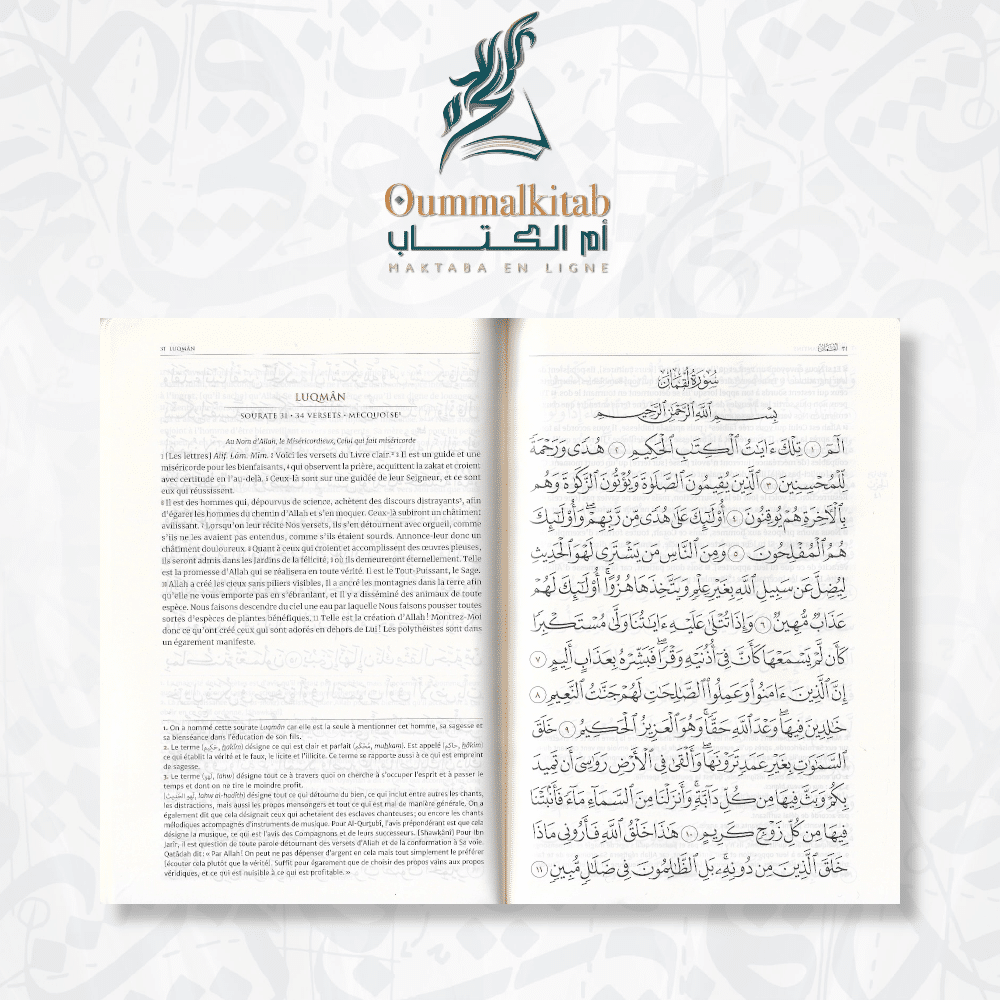 Oummalkitab
أم الكتاب
MAKTABA EN LIGNE
31 LUQMÂN
LUQMÂN
SOURATE 31 • 34 VERSETS • MECQUOISE¹
Au Nom d'Allah, le Miséricordieux, Celui qui fait miséricorde
1 [Les lettres] Alif. Lâm. Mîm. 2 Voici les versets du Livre clair.² 3 Il est un guide et une
miséricorde pour les bienfaisants, 4 qui observent la prière, acquittent la zakat et croient
avec certitude en l'au-delà. 5 Ceux-là sont sur une guidée de leur Seigneur, et ce sont
eux qui réussissent.
6 Il est des hommes qui, dépourvus de science, achètent des discours distrayants³, afin
d'égarer les hommes du chemin d'Allah et s'en moquer. Ceux-là subiront un châtiment
avilissant. 7 Lorsqu'on leur récite Nos versets, ils s'en détournent avec orgueil, comme
s'ils ne les avaient pas entendus, comme s'ils étaient sourds. Annonce-leur donc un
châtiment douloureux. 8 Quant à ceux qui croient et accomplissent des œuvres pieuses,
ils seront admis dans les Jardins de la félicité, 9 où ils demeureront éternellement. Telle
est la promesse d'Allah qui se réalisera en toute vérité. Il est le Tout-Puissant, le Sage.
10 Allah a créé les cieux sans piliers visibles, Il a ancré les montagnes dans la terre afin
qu'elle ne vous emporte pas en s'ébranlant, et Il y a disséminé des animaux de toute
espèce. Nous faisons descendre du ciel une eau par laquelle Nous faisons pousser toutes
sortes d'espèces de plantes bénéfiques. 11 Telle est la création d'Allah ! Montrez-Moi
donc ce qu'ont créé ceux qui sont adorés en dehors de Lui ! Les polythéistes sont dans
un égarement manifeste.
1. On a nommé cette sourate Luqmân car elle est la seule à mentionner cet homme, sa sagesse et
sa bienséance dans l'éducation de son fils.
2. Le terme (حَكِيم, ḥakîm) désigne ce qui est clair et parfait (مُحْكَم, muḥkam). Est appelé (حَاكِم, ḥâkim)
ce qui établit la vérité et le faux, le licite et l'illicite. Ce terme se rapporte aussi à ce qui est empreint
de sagesse.
3. Le terme (لَهْو, lahw) désigne tout ce à travers quoi on cherche à s'occuper l'esprit et à passer le
temps et dont on ne tire le moindre profit.
(لَهْوَ الحَدِيث, lahw al-ḥadîth) désigne tout ce qui détourne du bien, ce qui inclut entre autres les chants,
les distractions, mais aussi les propos mensongers et tout ce qui est mal de manière générale. On a
également dit que cela désignait ceux qui achetaient des esclaves chanteuses ; ou encore les chants
mélodiques accompagnés d'instruments de musique. Pour Al-Qurṭubî, l'avis prépondérant est que cela
désigne la musique, ce qui est l'avis des Compagnons et de leurs successeurs. [Shawkânî] Pour Ibn
Jarîr, il est question de toute parole détournant des versets d'Allah et de la conformation à Sa voie.
Qatâdah dit : « Par Allah ! On peut ne pas dépenser d'argent en cela mais tout simplement le préférer
[écouter cela plutôt que la vérité]. Suffit pour égarement que de choisir des propos vains aux propos
véridiques, et ce qui est nuisible à ce qui est profitable. »
٣١ لُقْمَان
سُورَةُ لُقْمَانَ
بِسْمِ ٱللَّهِ ٱلرَّحْمَٰنِ ٱلرَّحِيمِ
الٓمٓ ١ تِلْكَ ءَايَٰتُ ٱلْكِتَٰبِ ٱلْحَكِيمِ ٢ هُدًى وَرَحْمَةً
لِّلْمُحْسِنِينَ ٣ ٱلَّذِينَ يُقِيمُونَ ٱلصَّلَوٰةَ وَيُؤْتُونَ ٱلزَّكَوٰةَ وَهُم
بِٱلْأٓخِرَةِ هُمْ يُوقِنُونَ ٤ أُوْلَٰٓئِكَ عَلَىٰ هُدًى مِّن رَّبِّهِمْ ۖ وَأُوْلَٰٓئِكَ
هُمُ ٱلْمُفْلِحُونَ ٥ وَمِنَ ٱلنَّاسِ مَن يَشْتَرِى لَهْوَ ٱلْحَدِيثِ
لِيُضِلَّ عَن سَبِيلِ ٱللَّهِ بِغَيْرِ عِلْمٍ وَيَتَّخِذَهَا هُزُوًا ۚ أُوْلَٰٓئِكَ لَهُمْ
عَذَابٌ مُّهِينٌ ٦ وَإِذَا تُتْلَىٰ عَلَيْهِ ءَايَٰتُنَا وَلَّىٰ مُسْتَكْبِرًا
كَأَن لَّمْ يَسْمَعْهَا كَأَنَّ فِىٓ أُذُنَيْهِ وَقْرًا ۖ فَبَشِّرْهُ بِعَذَابٍ أَلِيمٍ ٧
إِنَّ ٱلَّذِينَ ءَامَنُواْ وَعَمِلُواْ ٱلصَّٰلِحَٰتِ لَهُمْ جَنَّٰتُ ٱلنَّعِيمِ ٨
خَٰلِدِينَ فِيهَا ۖ وَعْدَ ٱللَّهِ حَقًّا ۚ وَهُوَ ٱلْعَزِيزُ ٱلْحَكِيمُ ٩ خَلَقَ
ٱلسَّمَٰوَٰتِ بِغَيْرِ عَمَدٍ تَرَوْنَهَا ۖ وَأَلْقَىٰ فِى ٱلْأَرْضِ رَوَٰسِىَ أَن تَمِيدَ
بِكُمْ وَبَثَّ فِيهَا مِن كُلِّ دَآبَّةٍ ۚ وَأَنزَلْنَا مِنَ ٱلسَّمَآءِ مَآءً فَأَنۢبَتْنَا
فِيهَا مِن كُلِّ زَوْجٍ كَرِيمٍ ١٠ هَٰذَا خَلْقُ ٱللَّهِ فَأَرُونِى مَاذَا
خَلَقَ ٱلَّذِينَ مِن دُونِهِۦ ۚ بَلِ ٱلظَّٰلِمُونَ فِى ضَلَٰلٍ مُّبِينٍ ١١